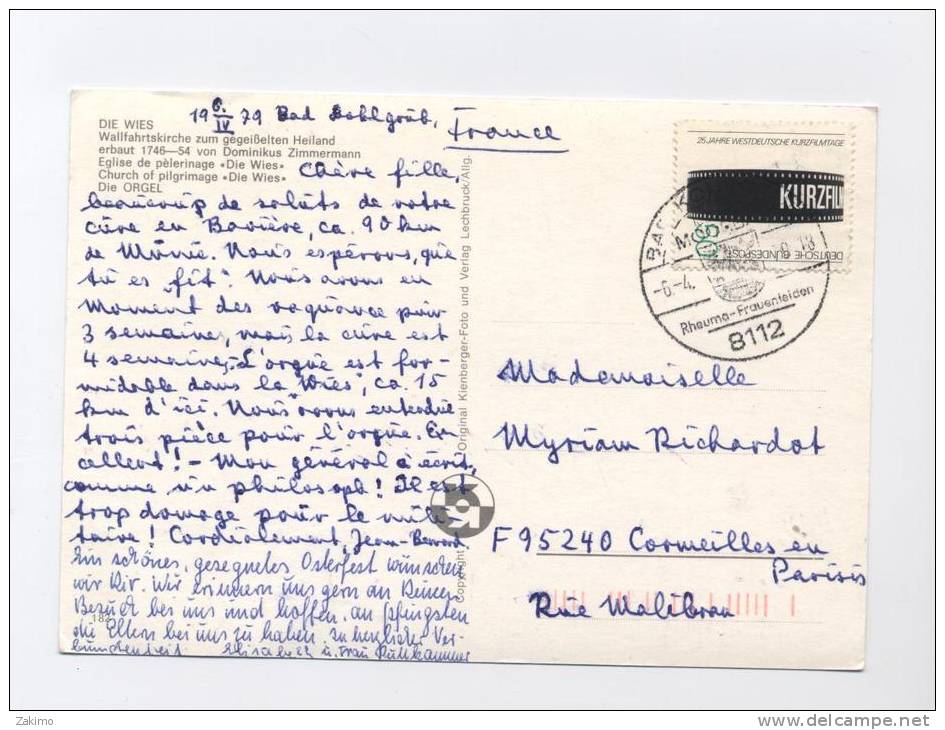 19 6./IV 79 Bad Kohlgrub,
France
DIE WIES
Wallfahrtskirche zum gegeißelten Heiland
erbaut 1746—54 von Dominikus Zimmermann
Eglise de pèlerinage «Die Wies»
Church of pilgrimage «Die Wies»
Die ORGEL
Chère fille,
beaucoup de saluts de votre
cure en Bavière, ca. 90 km
de Munic. Nous espérons, que
tu es "fit". Nous avons en
moment des vaquance pour
3 semaines, mais la cure est
4 semaines.- L'orgue est for-
midable dans la "Wies", ca. 15
km d'ici. Nous avons entendue
trois pièce pour l'orgue. Ex
cellent! - Mon général a écrit,
comme un philosoph! Il est
trop domage pour le mili-
taire! Cordialement, Jean-Bernard.
Ein schönes, gesegnetes Osterfest wünschen
wir Dir. Wir erinnern uns gern an Deinen
Besuch bei uns und hoffen, an Pfingsten
die Eltern bei uns zu haben. In herzlicher Ver-
bundenheit Elisabeth u. Frau
182
Copyright
Original Kienberger-Foto und Verlag Lechbruck/Allg.
25 JAHRE WESTDEUTSCHE KURZFILMTAGE
KURZFILM
DEUTSCHE BUNDESPOST
BAD
-6.-4.
Rheuma-Frauenleiden
8112
Mademoiselle
Myriam Richardot
F 95240 Cormeilles en
Parisis
Rue Malibran
Zakimo
www.delcampe.net